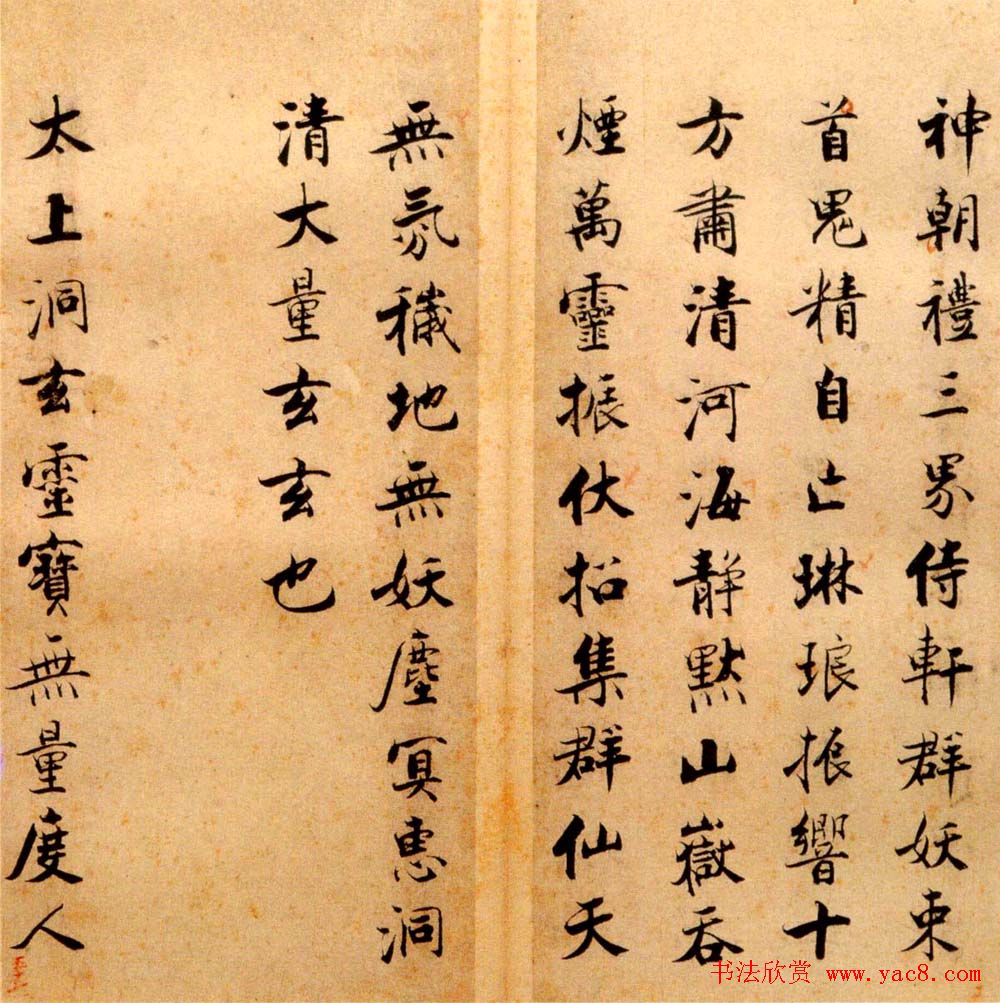 神朝禮三界侍軒群妖束
首鬼精自亡琳琅振響十
方肅清河海靜默山嶽吞
煙萬靈振伏招集群仙天
無氛穢地無妖塵冥惠洞
清大量玄玄也
太上洞玄靈寶無量度人
书法欣赏 www.yac8.com